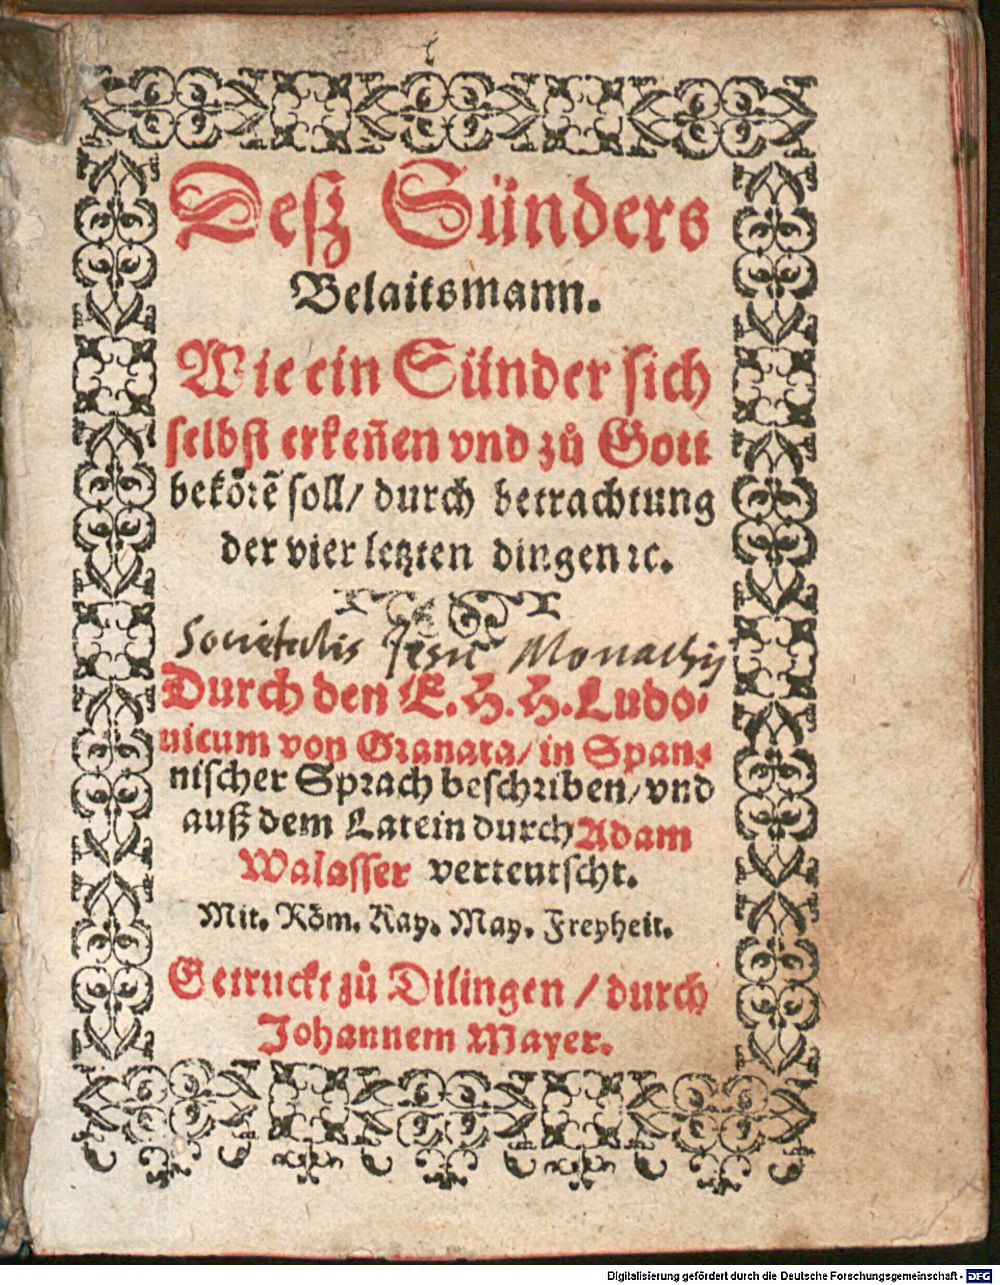 Deſz Sünders
Belaitsmann.
Wie ein Sünder sich
ſelbſt erkeñen vnd zů Gott
beköꝛẽ ſoll/ durch betrachtung
der vier letzten dingen ꝛc.
Societatis Jesu Monachij
Durch den E. H. H. Ludo-
uicum von Granata/ in Span-
niſcher Sprach beſchriben/ vnd
auß dem Latein durch Adam
Walaſſer verteutſcht.
Mit. Röm. Kay. May. Freyheit.
Getruckt zů Dilingen / durch
Johannem Mayer.
Digitalisierung gefördert durch die Deutsche Forschungsgemeinschaft - DFG